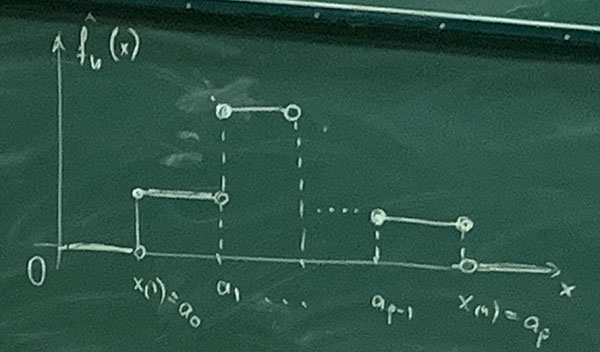 f̂ₙ(x)
0
x₍₁₎ = a₀ a₁ ... aₚ₋₁ x₍ₙ₎ = aₚ x